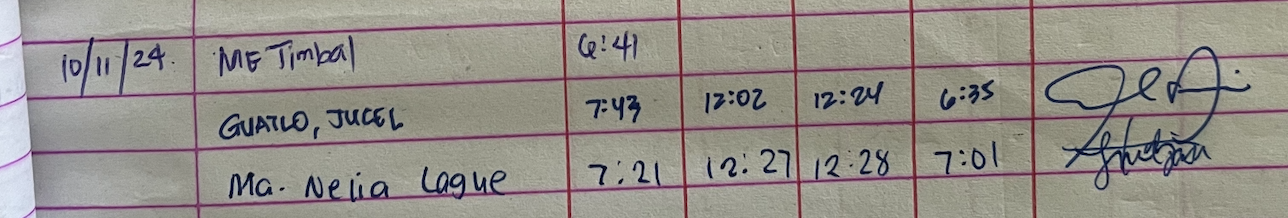 10/11/24. ME Timbal 6:41
GUATLO, JUCEL 7:43 12:02 12:24 6:35
Ma. Nelia Lague 7:21 12:27 12:28 7:01